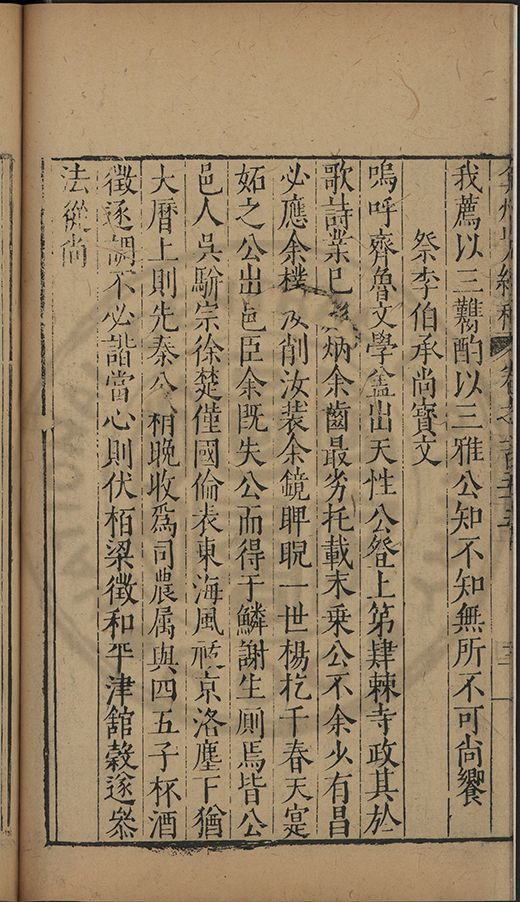 我薦以三鷚酌以三雅公知不知無所不可尚饗
祭李伯承尚寳文
嗚呼齊魯文學盖出天性公登上第肆棘寺政其於
歌詩業已炳余齒最劣托載末乗公不余少有昌
必應余樸及削汝装余鏡睥睨一世楊扢千春天寔
妬之公出邑臣余既失公而得于鱗謝生厠焉皆公
邑人吳駢宗徐楚僅國倫表東海風京洛塵下猶
大曆上則先秦公稍晚收爲司農属與四五子杯酒
徵逐調不必諧當心則伏栢梁徵和平津舘榖遂叅
法從尚